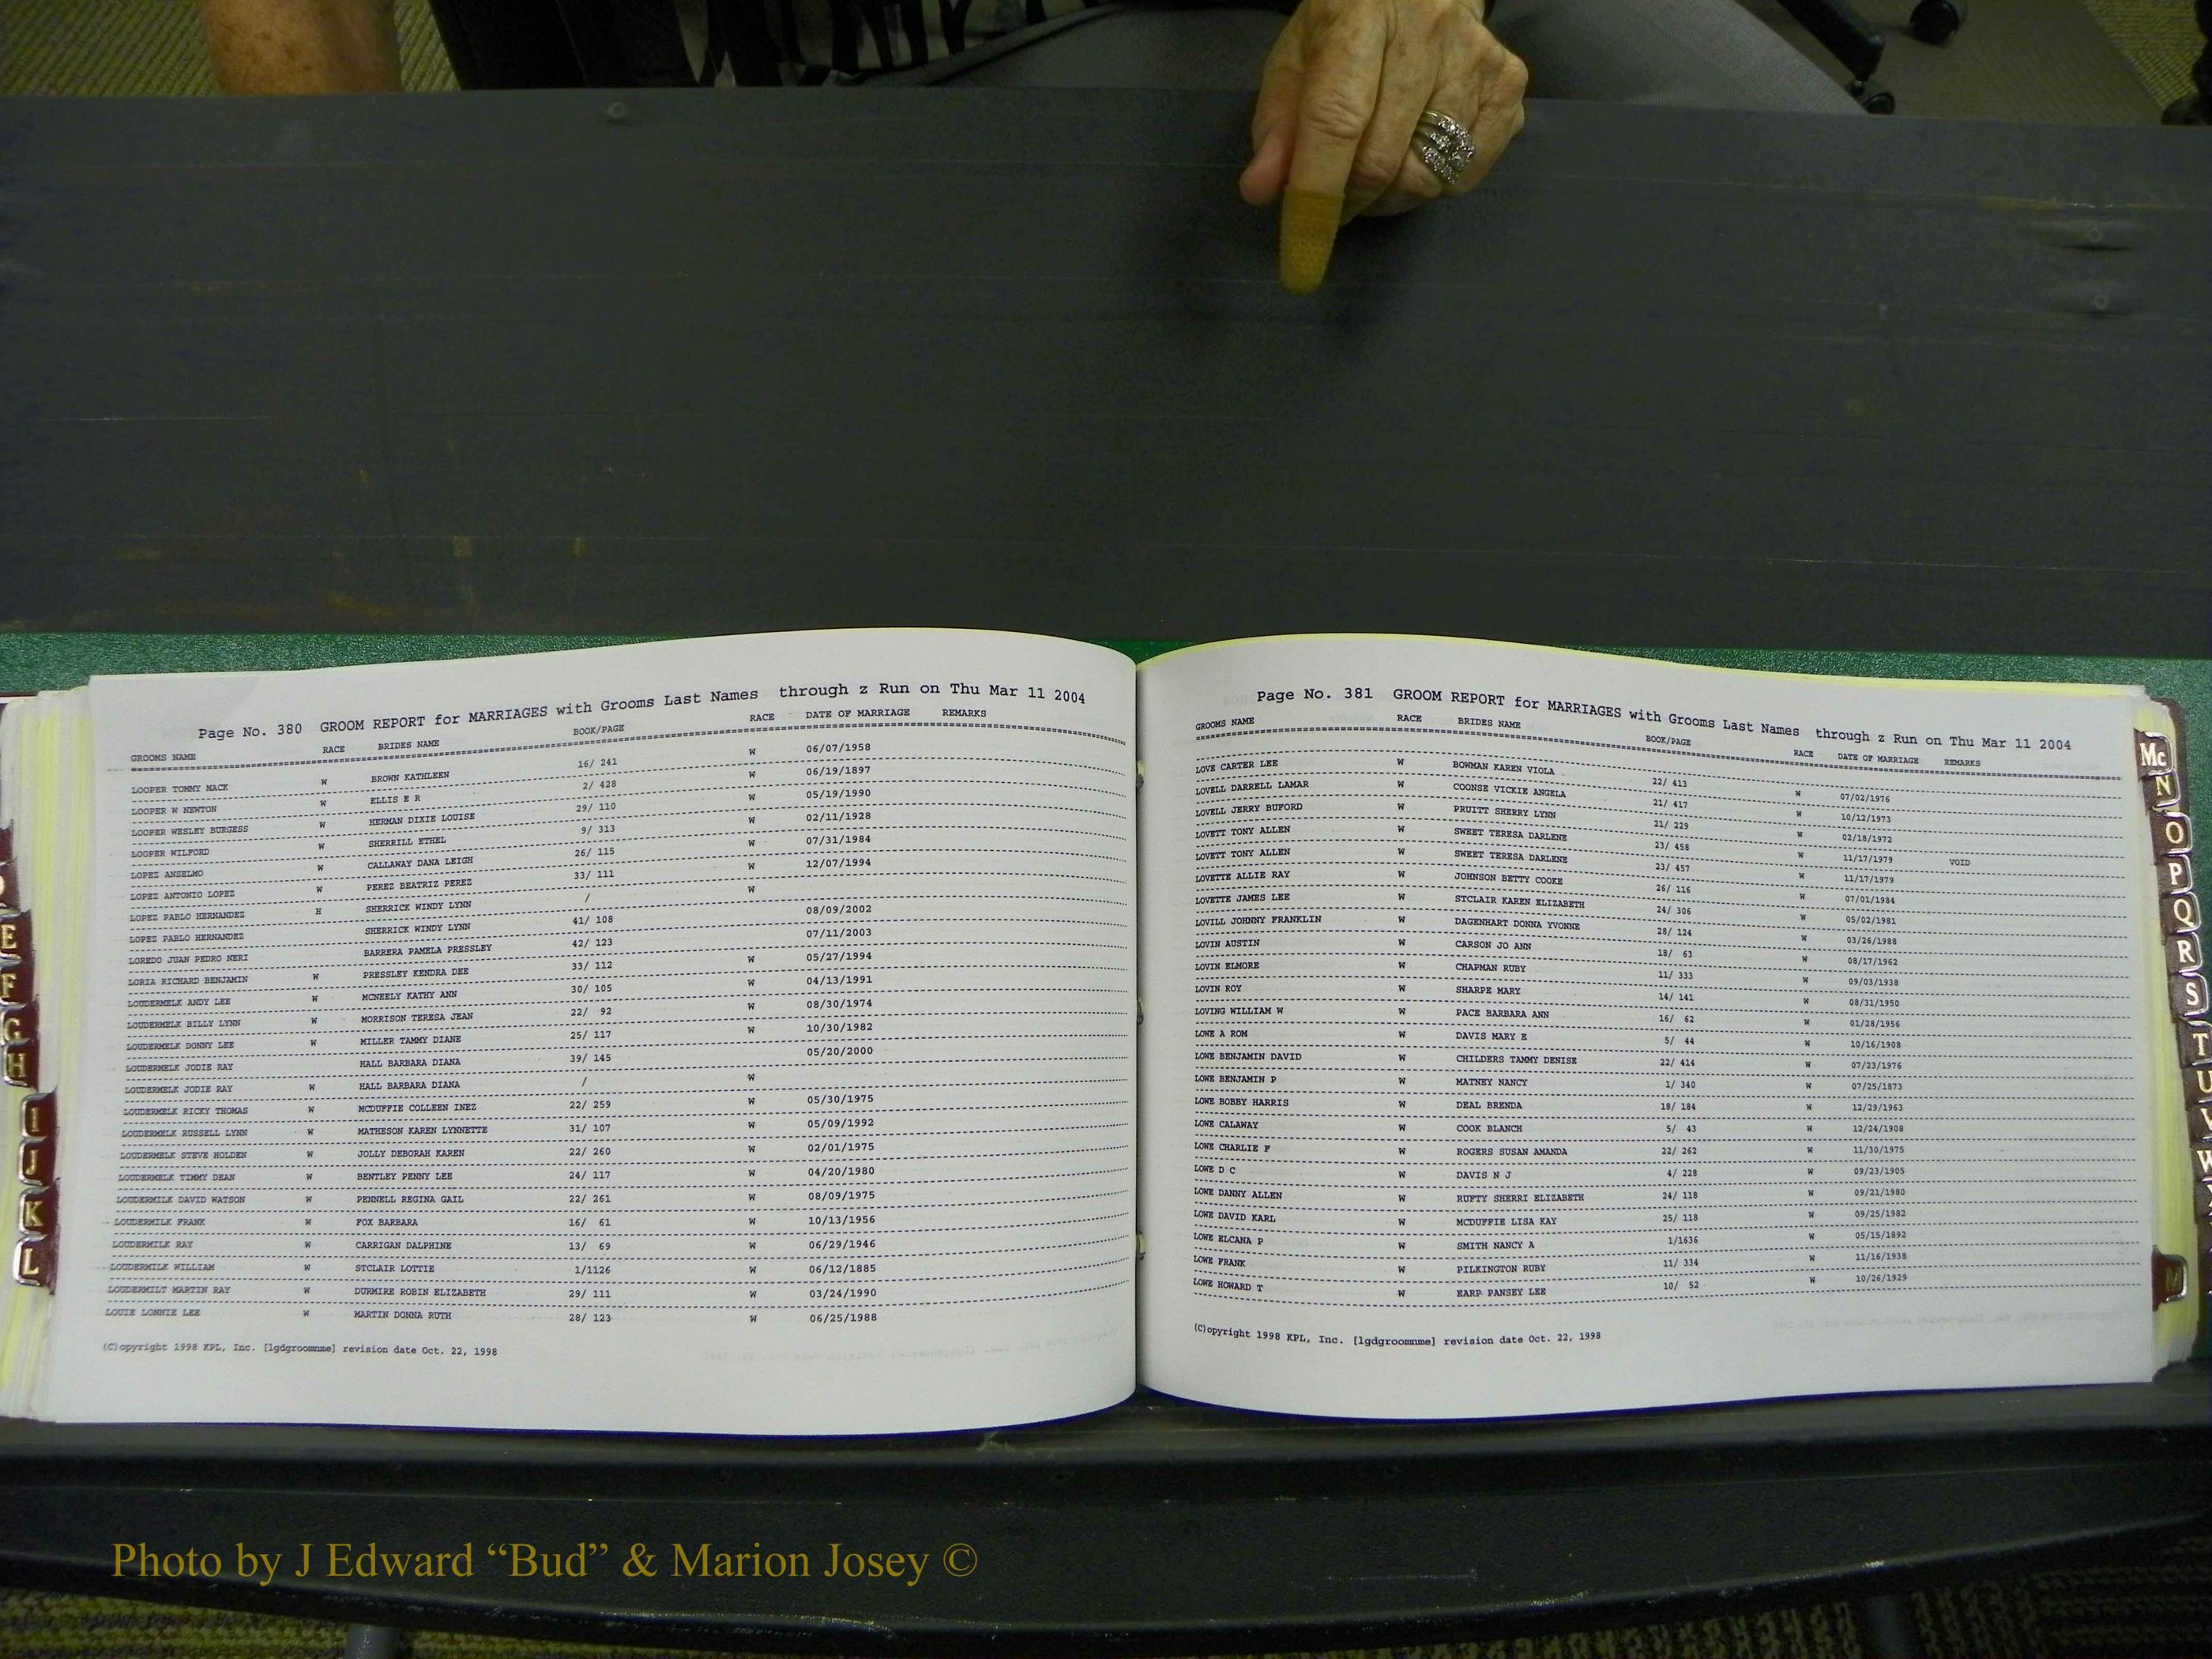 Page No. 380 GROOM REPORT for MARRIAGES with Grooms Last Names through z Run on Thu Mar 11 2004
GROOMS NAME RACE BRIDES NAME BOOK/PAGE RACE DATE OF MARRIAGE REMARKS
LOOPER TOMMY MACK W BROWN KATHLEEN 16/ 241 W 06/07/1958
LOOPER W NEWTON W ELLIS E R 2/ 428 W 06/19/1897
LOOPER WESLEY BURGESS W HERMAN DIXIE LOUISE 29/ 110 W 05/19/1990
LOOPER WILFORD W SHERRILL ETHEL 9/ 313 W 02/11/1928
LOPEZ ANSELMO W CALLAWAY DANA LEIGH 26/ 115 W 07/31/1984
LOPEZ ANTONIO LOPEZ W PEREZ BEATRIZ PEREZ 33/ 111 W 12/07/1994
LOPEZ PABLO HERNANDEZ H SHERRICK WINDY LYNN / W
LOPEZ PABLO HERNANDEZ SHERRICK WINDY LYNN 41/ 108 08/09/2002
LOREDO JUAN PEDRO NERI BARRERA PAMELA PRESSLEY 42/ 123 07/11/2003
LORIA RICHARD BENJAMIN W PRESSLEY KENDRA DEE 33/ 112 W 05/27/1994
LOUDERMELK ANDY LEE W MCNEELY KATHY ANN 30/ 105 W 04/13/1991
LOUDERMELK BILLY LYNN W MORRISON TERESA JEAN 22/ 92 W 08/30/1974
LOUDERMELK DONNY LEE W MILLER TAMMY DIANE 25/ 117 W 10/30/1982
LOUDERMELK JODIE RAY HALL BARBARA DIANA 39/ 145 05/20/2000
LOUDERMELK JODIE RAY W HALL BARBARA DIANA / W
LOUDERMELK RICKY THOMAS W MCDUFFIE COLLEEN INEZ 22/ 259 W 05/30/1975
LOUDERMELK RUSSELL LYNN W MATHESON KAREN LYNNETTE 31/ 107 W 05/09/1992
LOUDERMELK STEVE HOLDEN W JOLLY DEBORAH KAREN 22/ 260 W 02/01/1975
LOUDERMELK TIMMY DEAN W BENTLEY PENNY LEE 24/ 117 W 04/20/1980
LOUDERMILK DAVID WATSON W PENNELL REGINA GAIL 22/ 261 W 08/09/1975
LOUDERMILK FRANK W FOX BARBARA 16/ 61 W 10/13/1956
LOUDERMILK RAY W CARRIGAN DALPHINE 13/ 69 W 06/29/1946
LOUDERMILK WILLIAM W STCLAIR LOTTIE 1/1126 W 06/12/1885
LOUDERMILT MARTIN RAY W DURMIRE ROBIN ELIZABETH 29/ 111 W 03/24/1990
LOUIE LONNIE LEE W MARTIN DONNA RUTH 28/ 123 W 06/25/1988
(C)opyright 1998 KPL, Inc. [lgdgroomnme] revision date Oct. 22, 1998
Page No. 381 GROOM REPORT for MARRIAGES with Grooms Last Names through z Run on Thu Mar 11 2004
GROOMS NAME RACE BRIDES NAME BOOK/PAGE RACE DATE OF MARRIAGE REMARKS
LOVE CARTER LEE W BOWMAN KAREN VIOLA 22/ 413 W 07/02/1976
LOVELL DARRELL LAMAR W COONSE VICKIE ANGELA 21/ 417 W 10/12/1973
LOVELL JERRY BUFORD W PRUITT SHERRY LYNN 21/ 229 W 02/18/1972
LOVETT TONY ALLEN W SWEET TERESA DARLENE 23/ 458 W 11/17/1979 VOID
LOVETT TONY ALLEN W SWEET TERESA DARLENE 23/ 457 W 11/17/1979
LOVETTE ALLIE RAY W JOHNSON BETTY COOKE 26/ 116 W 07/01/1984
LOVETTE JAMES LEE W STCLAIR KAREN ELIZABETH 24/ 306 W 05/02/1981
LOVILL JOHNNY FRANKLIN W DAGENHART DONNA YVONNE 28/ 124 W 03/26/1988
LOVIN AUSTIN W CARSON JO ANN 18/ 63 W 08/17/1962
LOVIN ELMORE W CHAPMAN RUBY 11/ 333 W 09/03/1938
LOVIN ROY W SHARPE MARY 14/ 141 W 08/31/1950
LOVING WILLIAM W W PACE BARBARA ANN 16/ 62 W 01/28/1956
LOWE A ROM W DAVIS MARY E 5/ 44 W 10/16/1908
LOWE BENJAMIN DAVID W CHILDERS TAMMY DENISE 22/ 414 W 07/23/1976
LOWE BENJAMIN P W MATNEY NANCY 1/ 340 W 07/25/1873
LOWE BOBBY HARRIS W DEAL BRENDA 18/ 184 W 12/29/1963
LOWE CALAWAY W COOK BLANCH 5/ 43 W 12/24/1908
LOWE CHARLIE F W ROGERS SUSAN AMANDA 22/ 262 W 11/30/1975
LOWE D C W DAVIS N J 4/ 228 W 09/23/1905
LOWE DANNY ALLEN W RUFTY SHERRI ELIZABETH 24/ 118 W 09/21/1980
LOWE DAVID KARL W MCDUFFIE LISA KAY 25/ 118 W 09/25/1982
LOWE ELCANA P W SMITH NANCY A 1/1636 W 05/15/1892
LOWE FRANK W PILKINGTON RUBY 11/ 334 W 11/16/1938
LOWE HOWARD T W EARP PANSEY LEE 10/ 52 W 10/26/1929
(C)opyright 1998 KPL, Inc. [lgdgroomnme] revision date Oct. 22, 1998
E
F
G
H
I
J
K
L
Mc
N
O
P
Q
R
S
T
U
V
W
M
Photo by J Edward “Bud” & Marion Josey ©